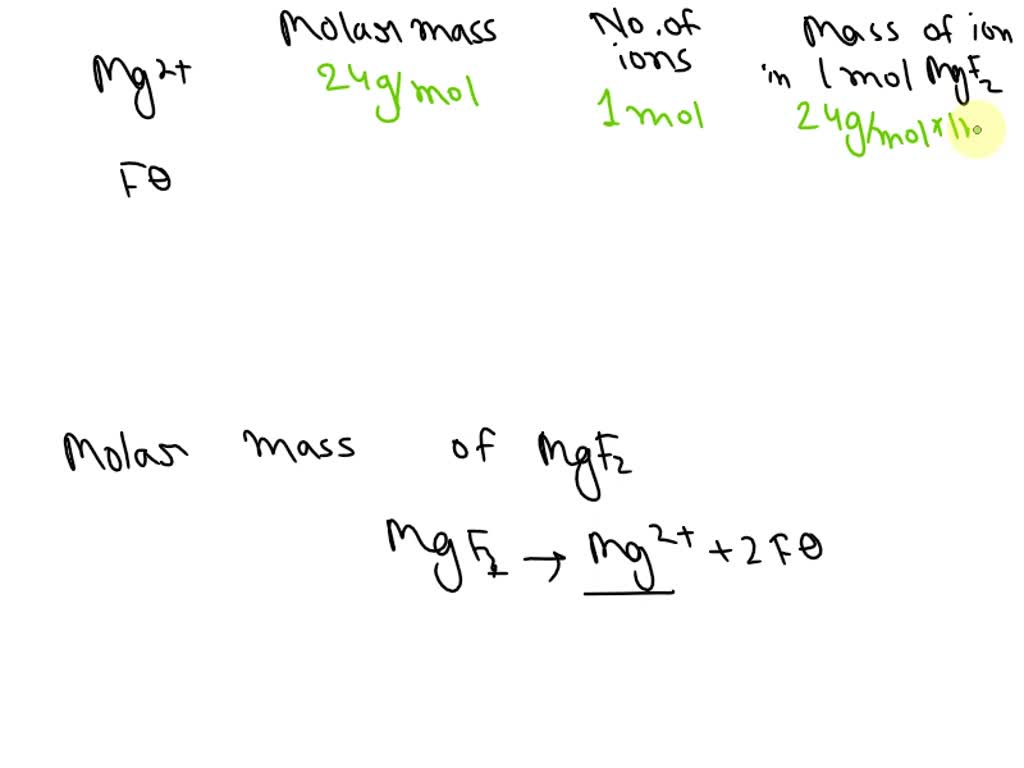 Molar mass No. of ions Mass of ion in 1 mol MgF₂
Mg²⁺ 24g/mol 1 mol 24g/mol*1
F⊖
Molar mass of MgF₂
MgF₂ → Mg²⁺ + 2F⊖